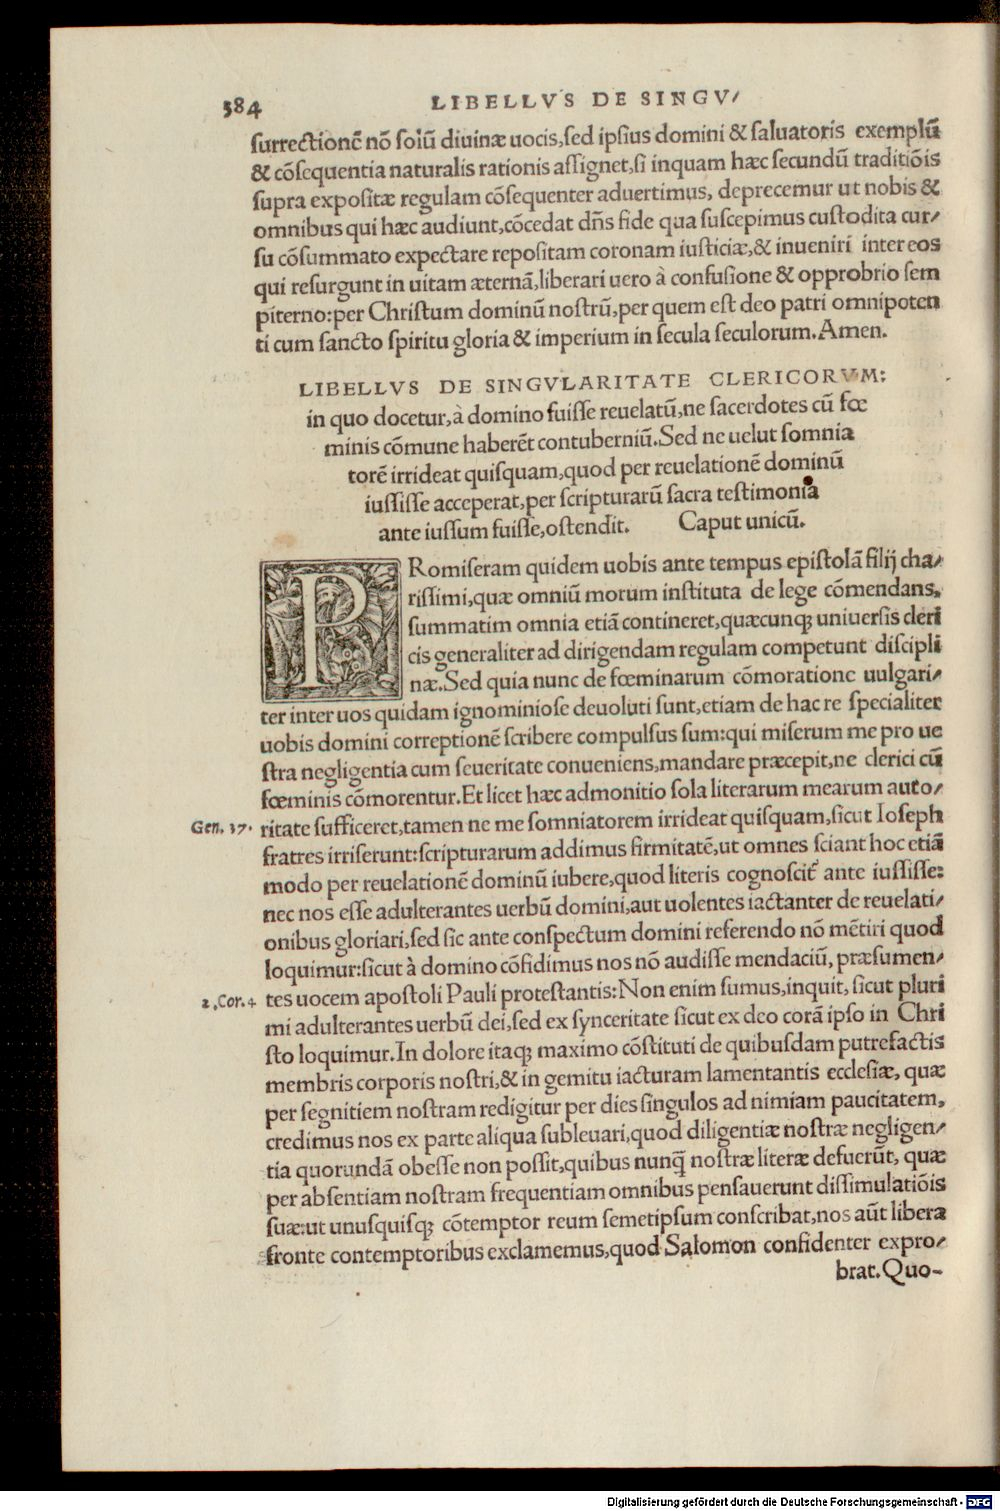 384
LIBELLVS DE SINGV⸗
surrectionē nō solū diuinæ uocis, sed ipsius domini & saluatoris exemplū
& cōsequentia naturalis rationis assignet, si inquam hæc secundū traditiōis
supra expositæ regulam cōsequenter aduertimus, deprecemur ut nobis &
omnibus qui hæc audiunt, cōcedat dñs fide qua suscepimus custodita cur⸗
su cōsummato expectare repositam coronam iusticiæ, & inueniri inter eos
qui resurgunt in uitam æternā, liberari uero à confusione & opprobrio sem
piterno: per Christum dominū nostrū, per quem est deo patri omnipoten
ti cum sancto spiritu gloria & imperium in secula seculorum. Amen.
LIBELLVS DE SINGVLARITATE CLERICORVM:
in quo docetur, à domino fuisse reuelatū, ne sacerdotes cū fœ
minis cōmune haberēt contuberniū. Sed ne uelut somnia
torē irrideat quisquam, quod per reuelationē dominū
iussisse acceperat, per scripturarū sacra testimonia
ante iussum fuisse, ostendit. Caput unicū.
PRomiseram quidem uobis ante tempus epistolā filij cha⸗
rissimi, quæ omniū morum instituta de lege cōmendans,
summatim omnia etiā contineret, quæcunq; uniuersis cleri
cis generaliter ad dirigendam regulam competunt discipli
næ. Sed quia nunc de fœminarum cōmoratione uulgari⸗
ter inter uos quidam ignominiose deuoluti sunt, etiam de hac re specialiter
uobis domini correptionē scribere compulsus sum: qui miserum me pro ue
stra negligentia cum seueritate conueniens, mandare præcepit, ne clerici cū
fœminis cōmorentur. Et licet hæc admonitio sola literarum mearum auto⸗
Gen. 37. ritate sufficeret, tamen ne me somniatorem irrideat quisquam, sicut Ioseph
fratres irriserunt: scripturarum addimus firmitatē, ut omnes sciant hoc etiā
modo per reuelationē dominū iubere, quod literis cognoscit̃ ante iussisse:
nec nos esse adulterantes uerbū domini, aut uolentes iactanter de reuelati⸗
onibus gloriari, sed sic ante conspectum domini referendo nō mētiri quod
loquimur: sicut à domino cōfidimus nos nō audisse mendaciū, præsumen⸗
2. Cor. 4 tes uocem apostoli Pauli protestantis: Non enim sumus, inquit, sicut pluri
mi adulterantes uerbū dei, sed ex synceritate sicut ex deo corā ipso in Chri
sto loquimur. In dolore itaq; maximo cōstituti de quibusdam putrefactis
membris corporis nostri, & in gemitu iacturam lamentantis ecclesiæ, quæ
per segnitiem nostram redigitur per dies singulos ad nimiam paucitatem,
credimus nos ex parte aliqua subleuari, quod diligentiæ nostræ negligen⸗
tia quorundā obesse non possit, quibus nunq̃ nostræ literæ defuerūt, quæ
per absentiam nostram frequentiam omnibus pensauerunt dissimulatiōis
suæ: ut unusquisq; cōtemptor reum semetipsum conscribat, nos aūt libera
fronte contemptoribus exclamemus, quod Salomon confidenter expro⸗
brat. Quo-
Digitalisierung gefördert durch die Deutsche Forschungsgemeinschaft - DFG